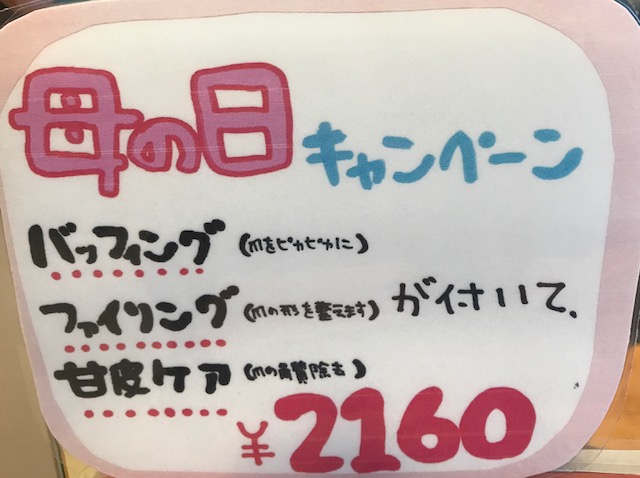 母の日キャンペーン
バッフィング(爪をピカピカに)
ファイリング(爪の形を整えます)が付いて、
甘皮ケア(爪の角質除去)
¥2160